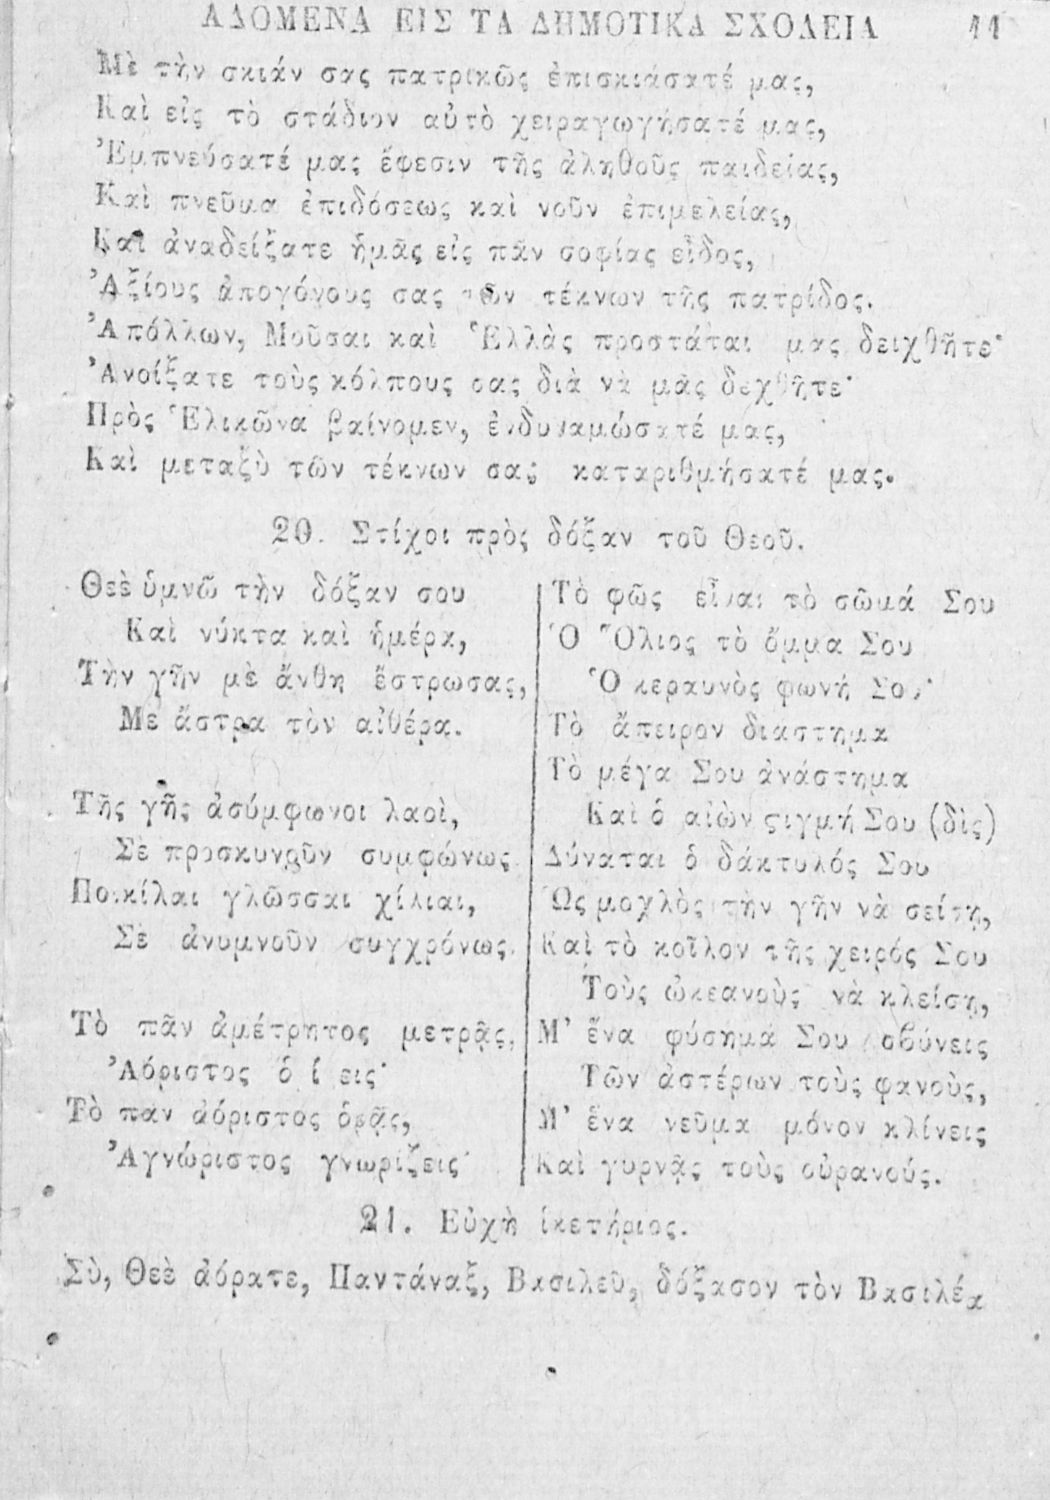 ΑΔΟΜΕΝΑ ΕΙΣ ΤΑ ΔΗΜΟΤΙΚΑ ΣΧΟΛΕΙΑ 11
Μὲ τὴν σκιάν σας πατρικῶς ἐπισκιάσατέ μας,
Καὶ εἰς τὸ στάδιον αὐτὸ χειραγωγήσατέ μας,
Ἐμπνεύσατέ μας ἔφεσιν τῆς ἀληθοῦς παιδείας,
Καὶ πνεῦμα ἐπιδόσεως καὶ νοῦν ἐπιμελείας,
Καὶ ἀναδείξατε ἡμᾶς εἰς πᾶν σοφίας εἶδος,
Ἀξίους ἀπογόνους σας τῶν τέκνων τῆς πατρίδος.
Ἀπόλλων, Μοῦσαι καὶ Ἑλλὰς προστάται μας δειχθῆτε·
Ἀνοίξατε τοὺς κόλπους σας διὰ νὰ μᾶς δεχθῆτε·
Πρὸς Ἑλικῶνα βαίνομεν, ἐνδυναμώσατέ μας,
Καὶ μεταξὺ τῶν τέκνων σας καταριθμήσατέ μας.
20. Στίχοι πρὸς δόξαν τοῦ Θεοῦ.
Θεὲ ὑμνῶ τὴν δόξαν σου
Καὶ νύκτα καὶ ἡμέρα,
Τὴν γῆν μὲ ἄνθη ἔστρωσας,
Με ἄστρα τὸν αἰθέρα.
Τῆς γῆς ἀσύμφωνοι λαοὶ,
Σὲ προσκυνοῦν συμφώνως
Ποικίλαι γλῶσσαι χίλιαι,
Σὲ ἀνυμνοῦν συγχρόνως.
Τὸ πᾶν ἀμέτρητος μετρᾷς,
Ἀόριστος ὁρίζεις·
Τὸ παν ἀόριστος ὁρᾷς,
Ἀγνώριστος γνωρίζεις·
Τὸ φῶς εἶναι τὸ σῶμά Σου
Ὁ Ὅλιος τὸ ὄμμα Σου
Ὁ κεραυνὸς φωνή Σου·
Τὸ ἄπειρον διαστημα
Τὸ μέγα Σου ἀνάστημα
Καὶ ὁ αἰὼν ςιγμή Σου (δὶς)
Δύναται ὁ δάκτυλός Σου
Ὡς μοχλὸς τὴν γῆν νὰ σείτῃ,
Καὶ τὸ κοῖλον τῆς χειρός Σου
Τοὺς ὠκεανοὺς νὰ κλείσῃ,
Μ' ἕνα φύσημά Σου σβύνεις
Τῶν ἀστέρων τοὺς φανοὺς,
Μ' ἕνα νεῦμα μόνον κλίνεις
Καὶ γυρνᾷς τοὺς οὐρανούς.
21. Εὐχὴ ἱκετήριος.
Σὺ, Θεὲ ἀόρατε, Παντάναξ, Βασιλεῦ, δόξασον τὸν Βασιλέα